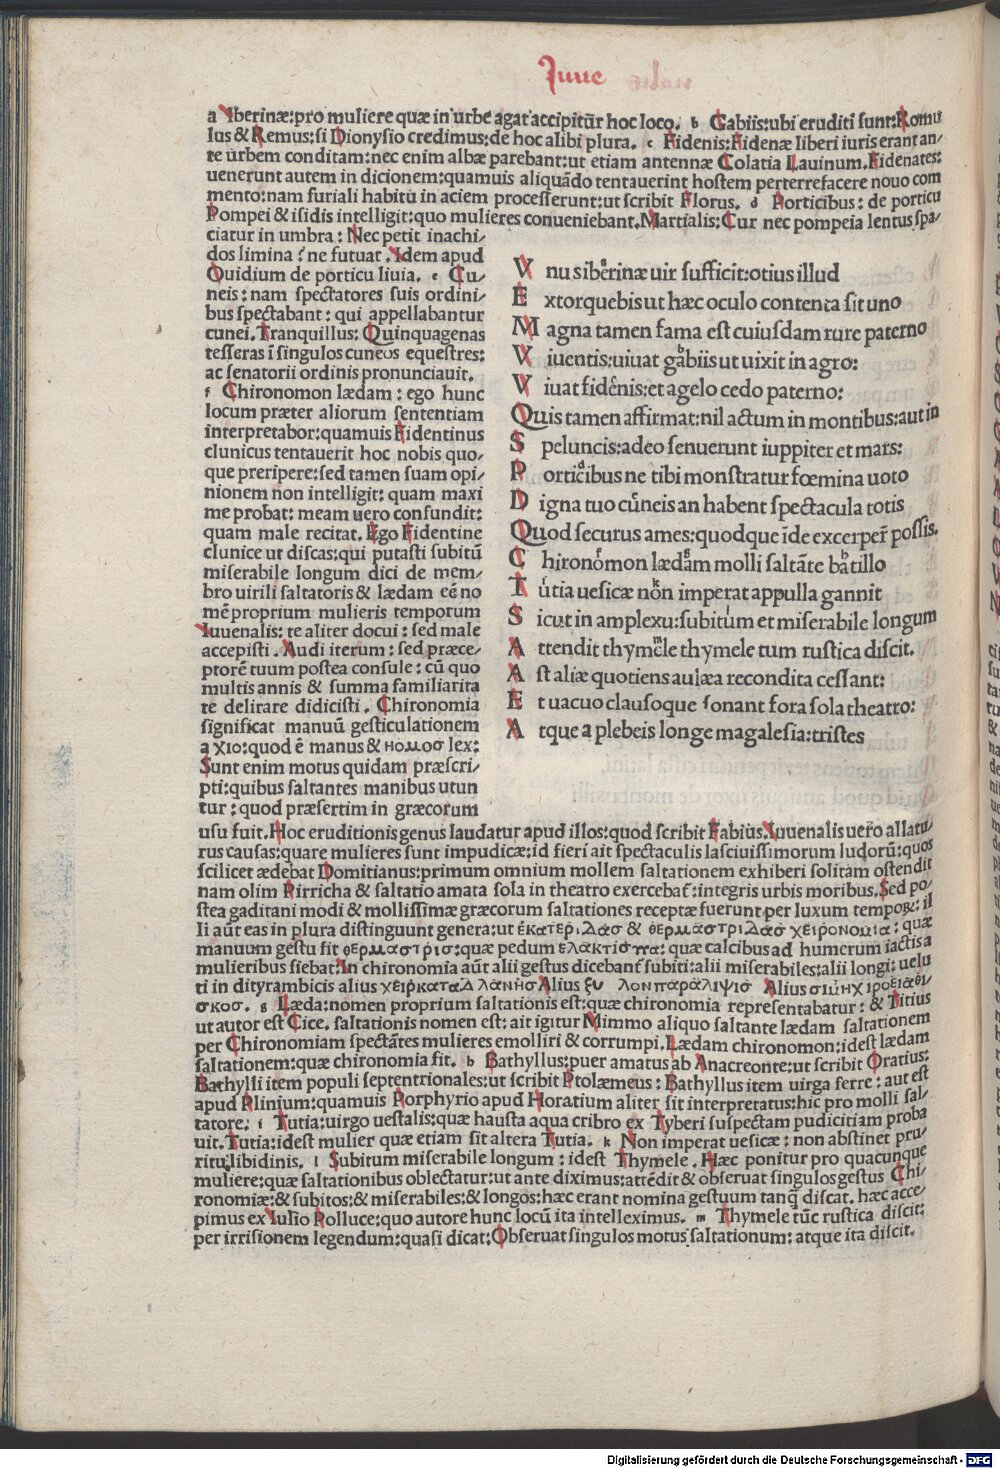 Juue
a Iberinæ:pro muliere quæ in urbe agat accipitur hoc loco. b Gabiis:ubi eruditi sunt:Romu
lus & Remus:si Dionysio credimus:de hoc alibi plura. c Fidenis:Fidenæ liberi iuris erant an-
te urbem conditam:nec enim albæ parebant:ut etiam antennæ Colatia Lauinum.Fidenates:
uenerunt autem in dicionem:quamuis aliquādo tentauerint hostem perterrefacere nouo com
mento:nam furiali habitu in aciem processerunt:ut scribit Florus. d Porticibus: de porticu
Pompei & isidis intelligit:quo mulieres conueniebant.Martialis:Cur nec pompeia lentus spa/
ciatur in umbra: Nec petit inachi/
dos limina ? ne futuat .Idem apud
Ouidium de porticu liuia. e Cu/
neis: nam spectatores suis ordini/
bus spectabant: qui appellabantur
cunei.Tranquillus:Quinquagenas
tesseras ī singulos cuneos equestres:
ac senatorii ordinis pronunciauit.
f Chironomon lædam: ego hunc
locum præter aliorum sententiam
interpretabor:quamuis Fidentinus
clunicus tentauerit hoc nobis quo/
que preripere:sed tamen suam opi/
nionem non intelligit: quam maxi
me probat: meam uero confundit:
quam male recitat. Ego Fidentine
clunice ut discas:qui putasti subitū
miserabile longum dici de mem/
bro uirili saltatoris & lædam eē no
mē proprium mulieris temporum
Iuuenalis: te aliter docui: sed male
accepisti. Audi iterum: sed præce/
ptorē tuum postea consule: cū quo
multis annis & summa familiarita
te delirare didicisti. Chironomia
significat manuū gesticulationem
a χιο:quod ē manus & νομοσ lex:
Sunt enim motus quidam præscri/
pti:quibus saltantes manibus utun
tur: quod præsertim in græcorum
V nus iberinæ uir sufficit:otius illud
E xtorquebis ut hæc oculo contenta sit uno
M agna tamen fama est cuiusdam rure paterno
V iuentis:uiuat gabiis ut uixit in agro:
V iuat fidenis:et agelo cedo paterno:
Quis tamen affirmat:nil actum in montibus:aut in
S peluncis:adeo senuerunt iuppiter et mars:
P orticibus ne tibi monstratur fœmina uoto
D igna tuo cuneis an habent spectacula totis
Quod securus ames:quodque īde excerper̄ possis.
C hironomon lædam molli saltāte batillo
T utia uesicæ non imperat appulla gannit
S icut in amplexu:subitum et miserabile longum
A ttendit thymele thymele tum rustica discit.
A st aliæ quotiens aulæa recondita cessant:
E t uacuo clausoque sonant fora sola theatro:
A tque a plebeis longe magalesia:tristes
usu fuit.Hoc eruditionis genus laudatur apud illos:quod scribit Fabius.Iuuenalis uero allatu/
rus causas:quare mulieres sunt impudicæ:id fieri ait spectaculis lasciuissimorum ludorū:quos
scilicet ædebat Domitianus:primum omnium mollem saltationem exhiberi solitam ostendit
nam olim Pirricha & saltatio amata sola in theatro exercebat̄:integris urbis moribus.Sed po/
stea gaditani modi & mollissimæ græcorum saltationes receptæ fuerunt per luxum tempoꝝ: il
li aūt eas in plura distinguunt genera:ut εκατεριδασ & θερμαστριδασ χειρονομια: quæ
manuum gestu fit θερμαστρισ:quæ pedum ελακτισμα: quæ calcibus ad humerum iactis a
mulieribus fiebat:In chironomia aūt alii gestus dicebant̄ subiti:alii miserabiles:alii longi: uelu
ti in dityrambicis alius Alius Alius
σκοσ. g Læda:nomen proprium saltationis est:quæ chironomia repræsentabatur: & Titius
ut autor est Cice. saltationis nomen est: ait igitur Mimmo aliquo saltante lædam saltationem
per Chironomiam spectātes mulieres emolliri & corrumpi.Lædam chironomon:idest lædam
saltationem:quæ chironomia fit. h Bathyllus:puer amatus ab Anacreonte:ut scribit Oratius:
Bathylli item populi septentrionales:ut scribit Ptolæmeus: Bathyllus item uirga ferre: aut est
apud Plinium:quamuis Porphyrio apud Horatium aliter sit interpretatus:hic pro molli sal/
tatore. i Tutia:uirgo uestalis:quæ hausta aqua cribro ex Tyberi suspectam pudicitiam proba
uit.Tutia:idest mulier quæ etiam sit altera Tutia. k Non imperat uesicæ: non abstinet pru/
ritu libidinis. l Subitum miserabile longum: idest Thymele. Hæc ponitur pro quacunque
muliere:quæ saltationibus oblectatur:ut ante diximus:attēdit & obseruat singulos gestus Chi/
ronomiæ:& subitos:& miserabiles:& longos:hæc erant nomina gestuum tanq̄ discat. hæc acce/
pimus ex Iulio Polluce:quo autore hunc locū ita intelleximus. m Thymele tūc rustica discit:
per irrisionem legendum:quasi dicat:Obseruat singulos motus saltationum: atque ita discit.
Digitalisierung gefördert durch die Deutsche Forschungsgemeinschaft - DFG